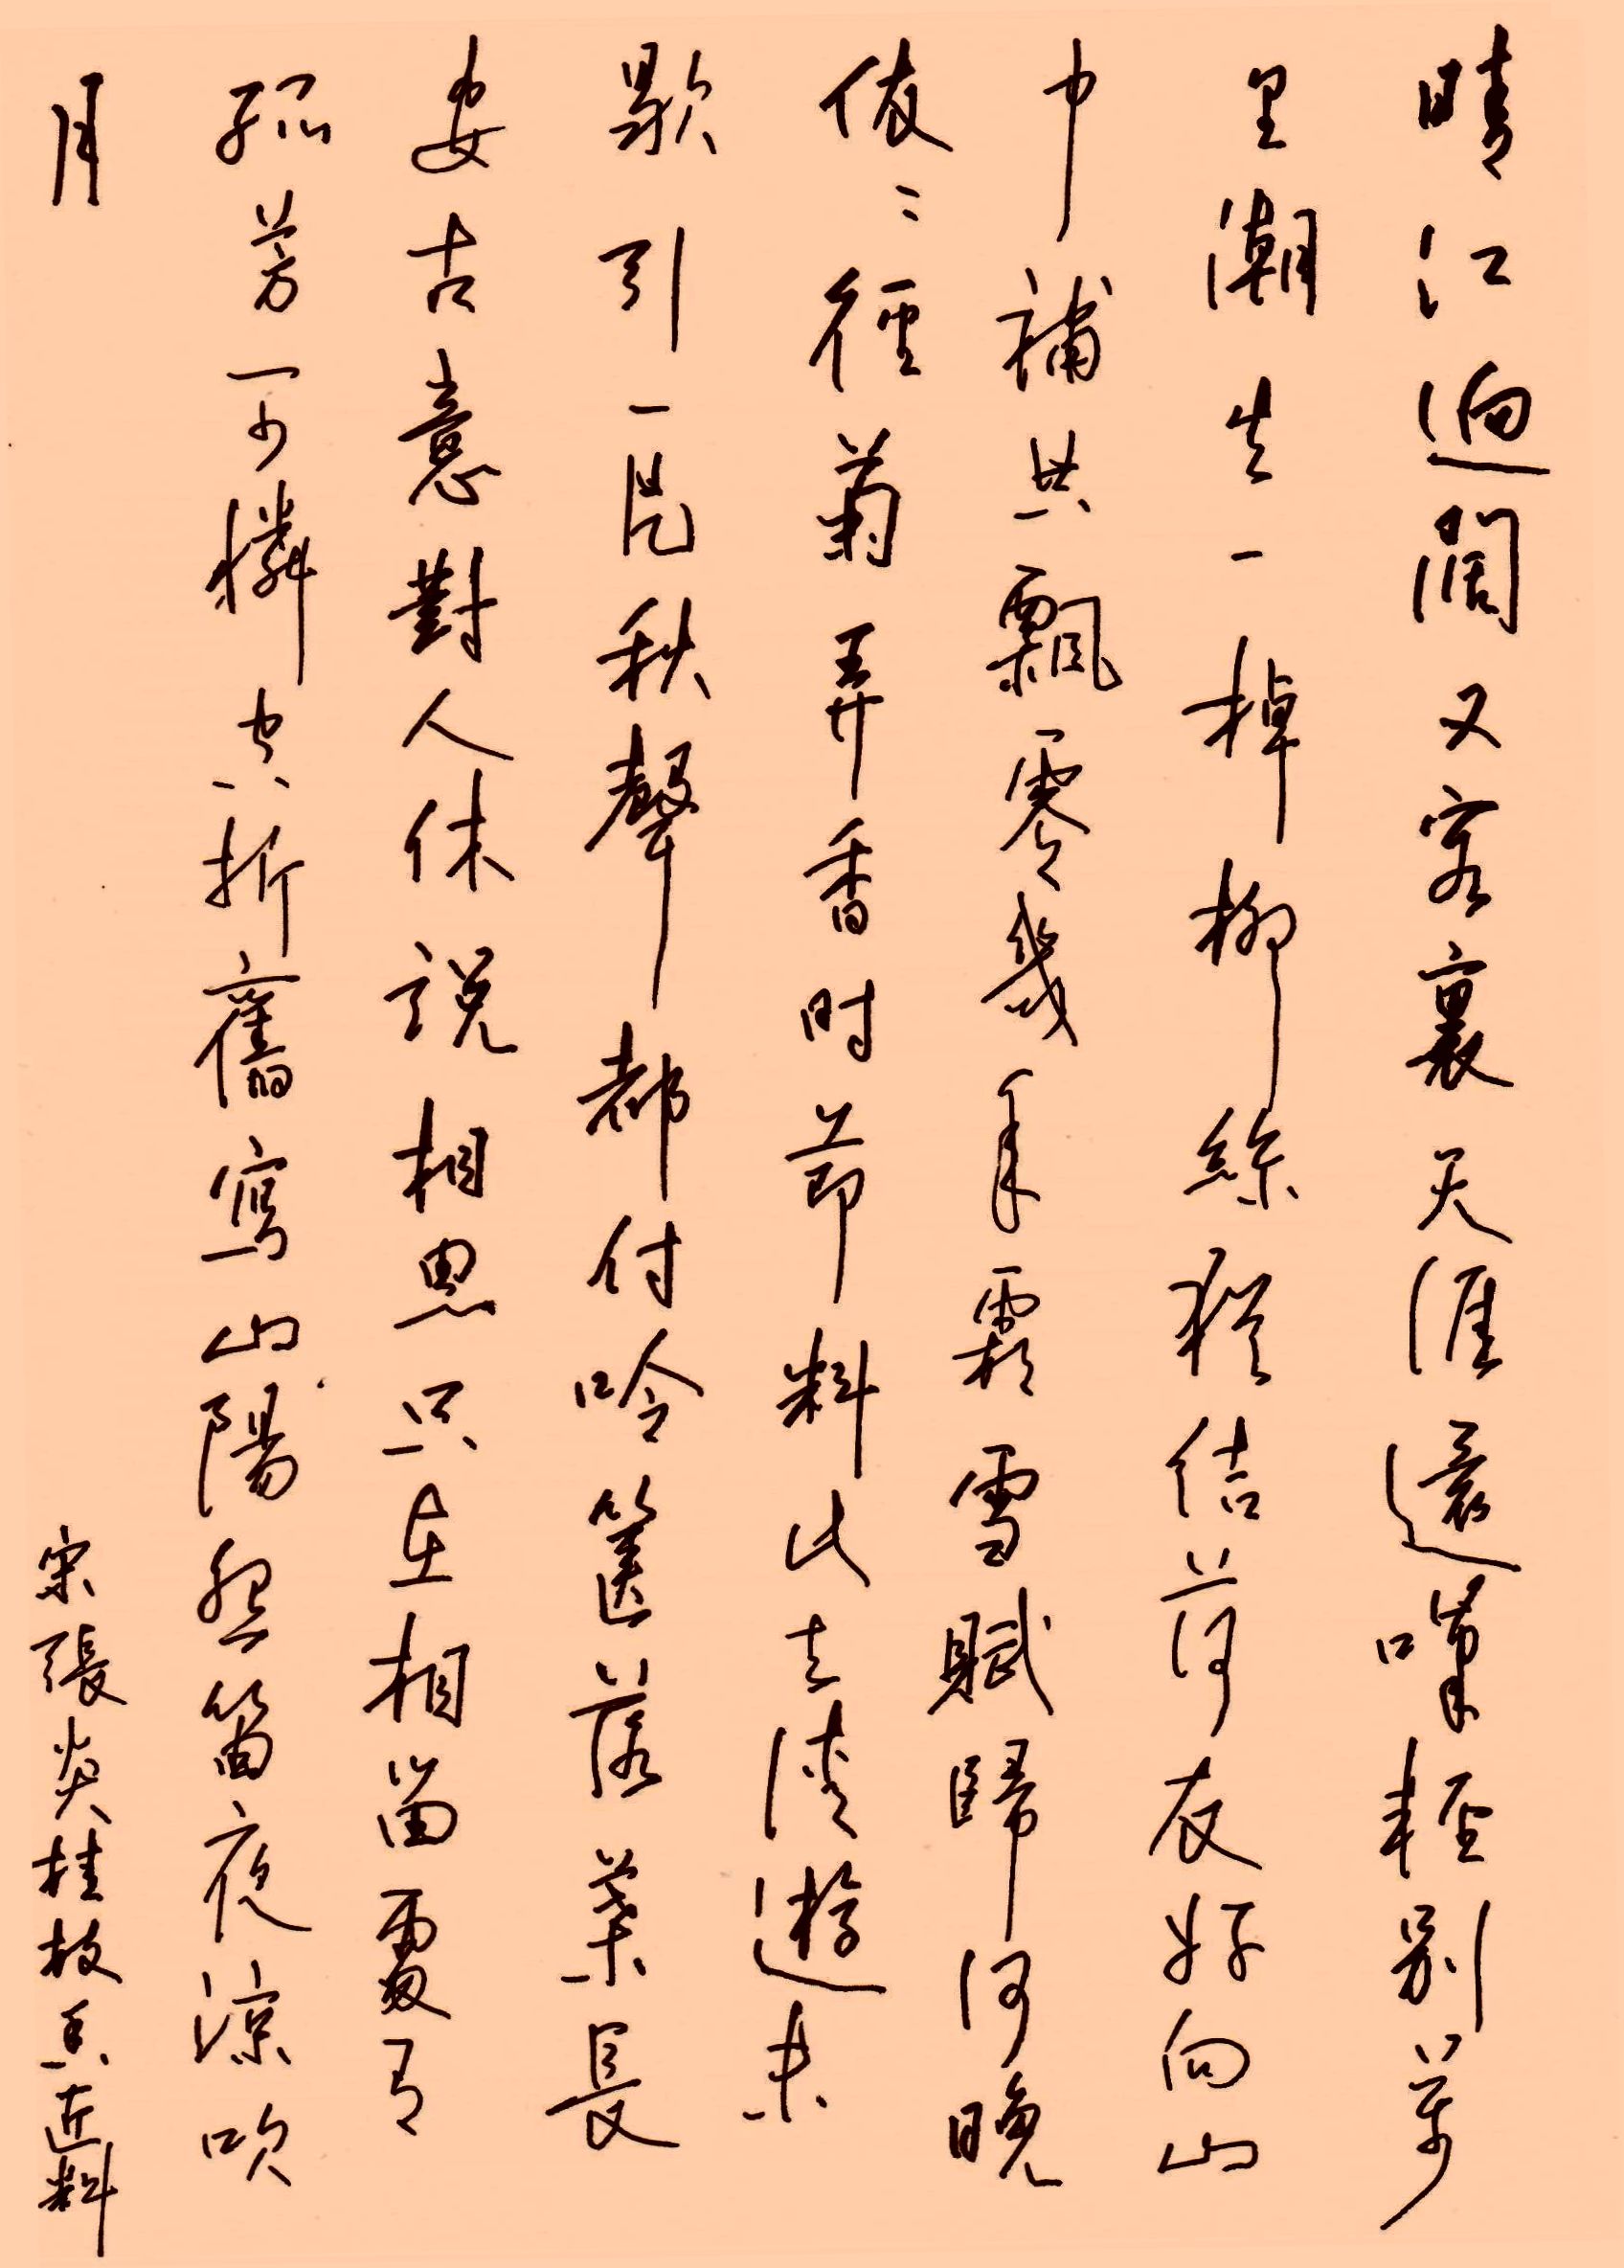 晴江迥闊又客裏天涯還嘆輕别萬
里潮生一棹柳絲猶結荷衣好向山
中補共飄零幾年霜雪賦歸何晚
依〻徑菊弄香时節料此去清遊未
歇引一片秋聲都付吟篋落葉長
安古意對人休說相思只在相留處有
孤芳可憐空折舊寫山陽怨笛夜涼吹
月
宋張炎桂枝香近料